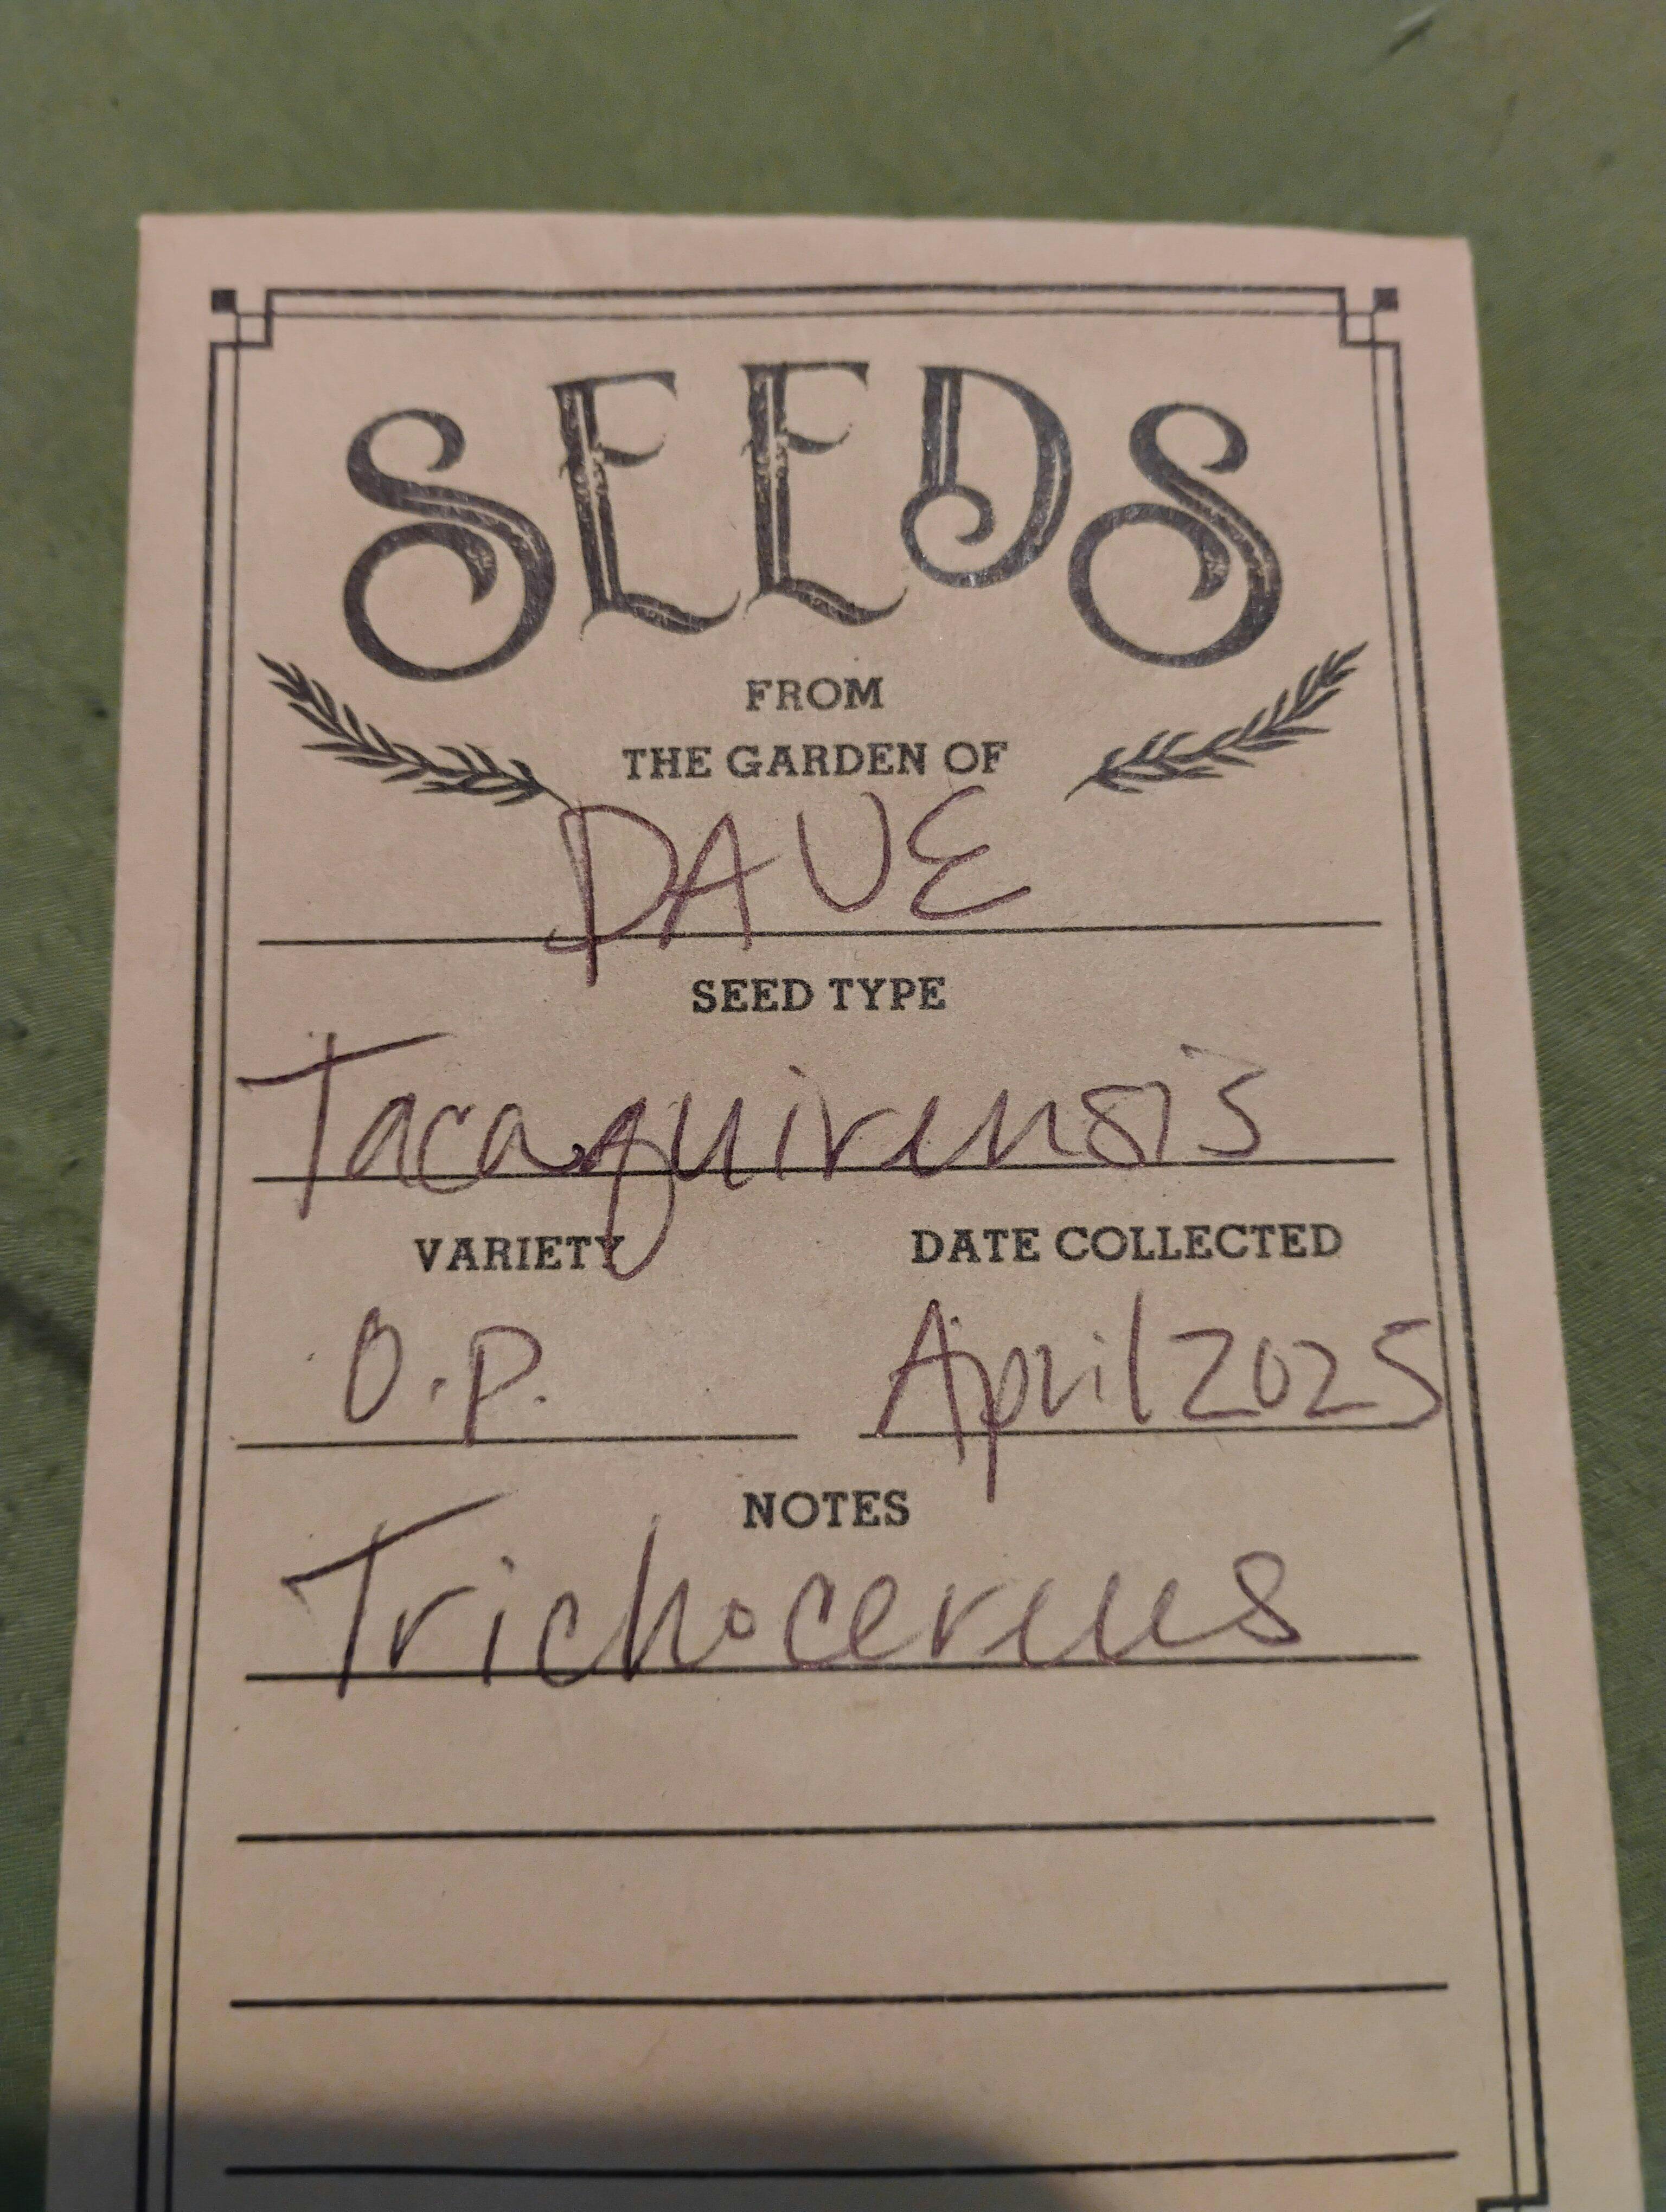 SEEDS
FROM
THE GARDEN OF
DAVE
SEED TYPE
Tacaquirensis
VARIETY DATE COLLECTED
O.P. April 2025
NOTES
Trichocereus